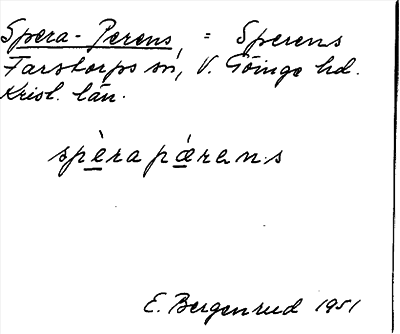 Spera-Perens, = Sperens
Farstorps sn, V. Göinge hd.
Krist. län.
spèrapárens
E. Bergenrud 1951